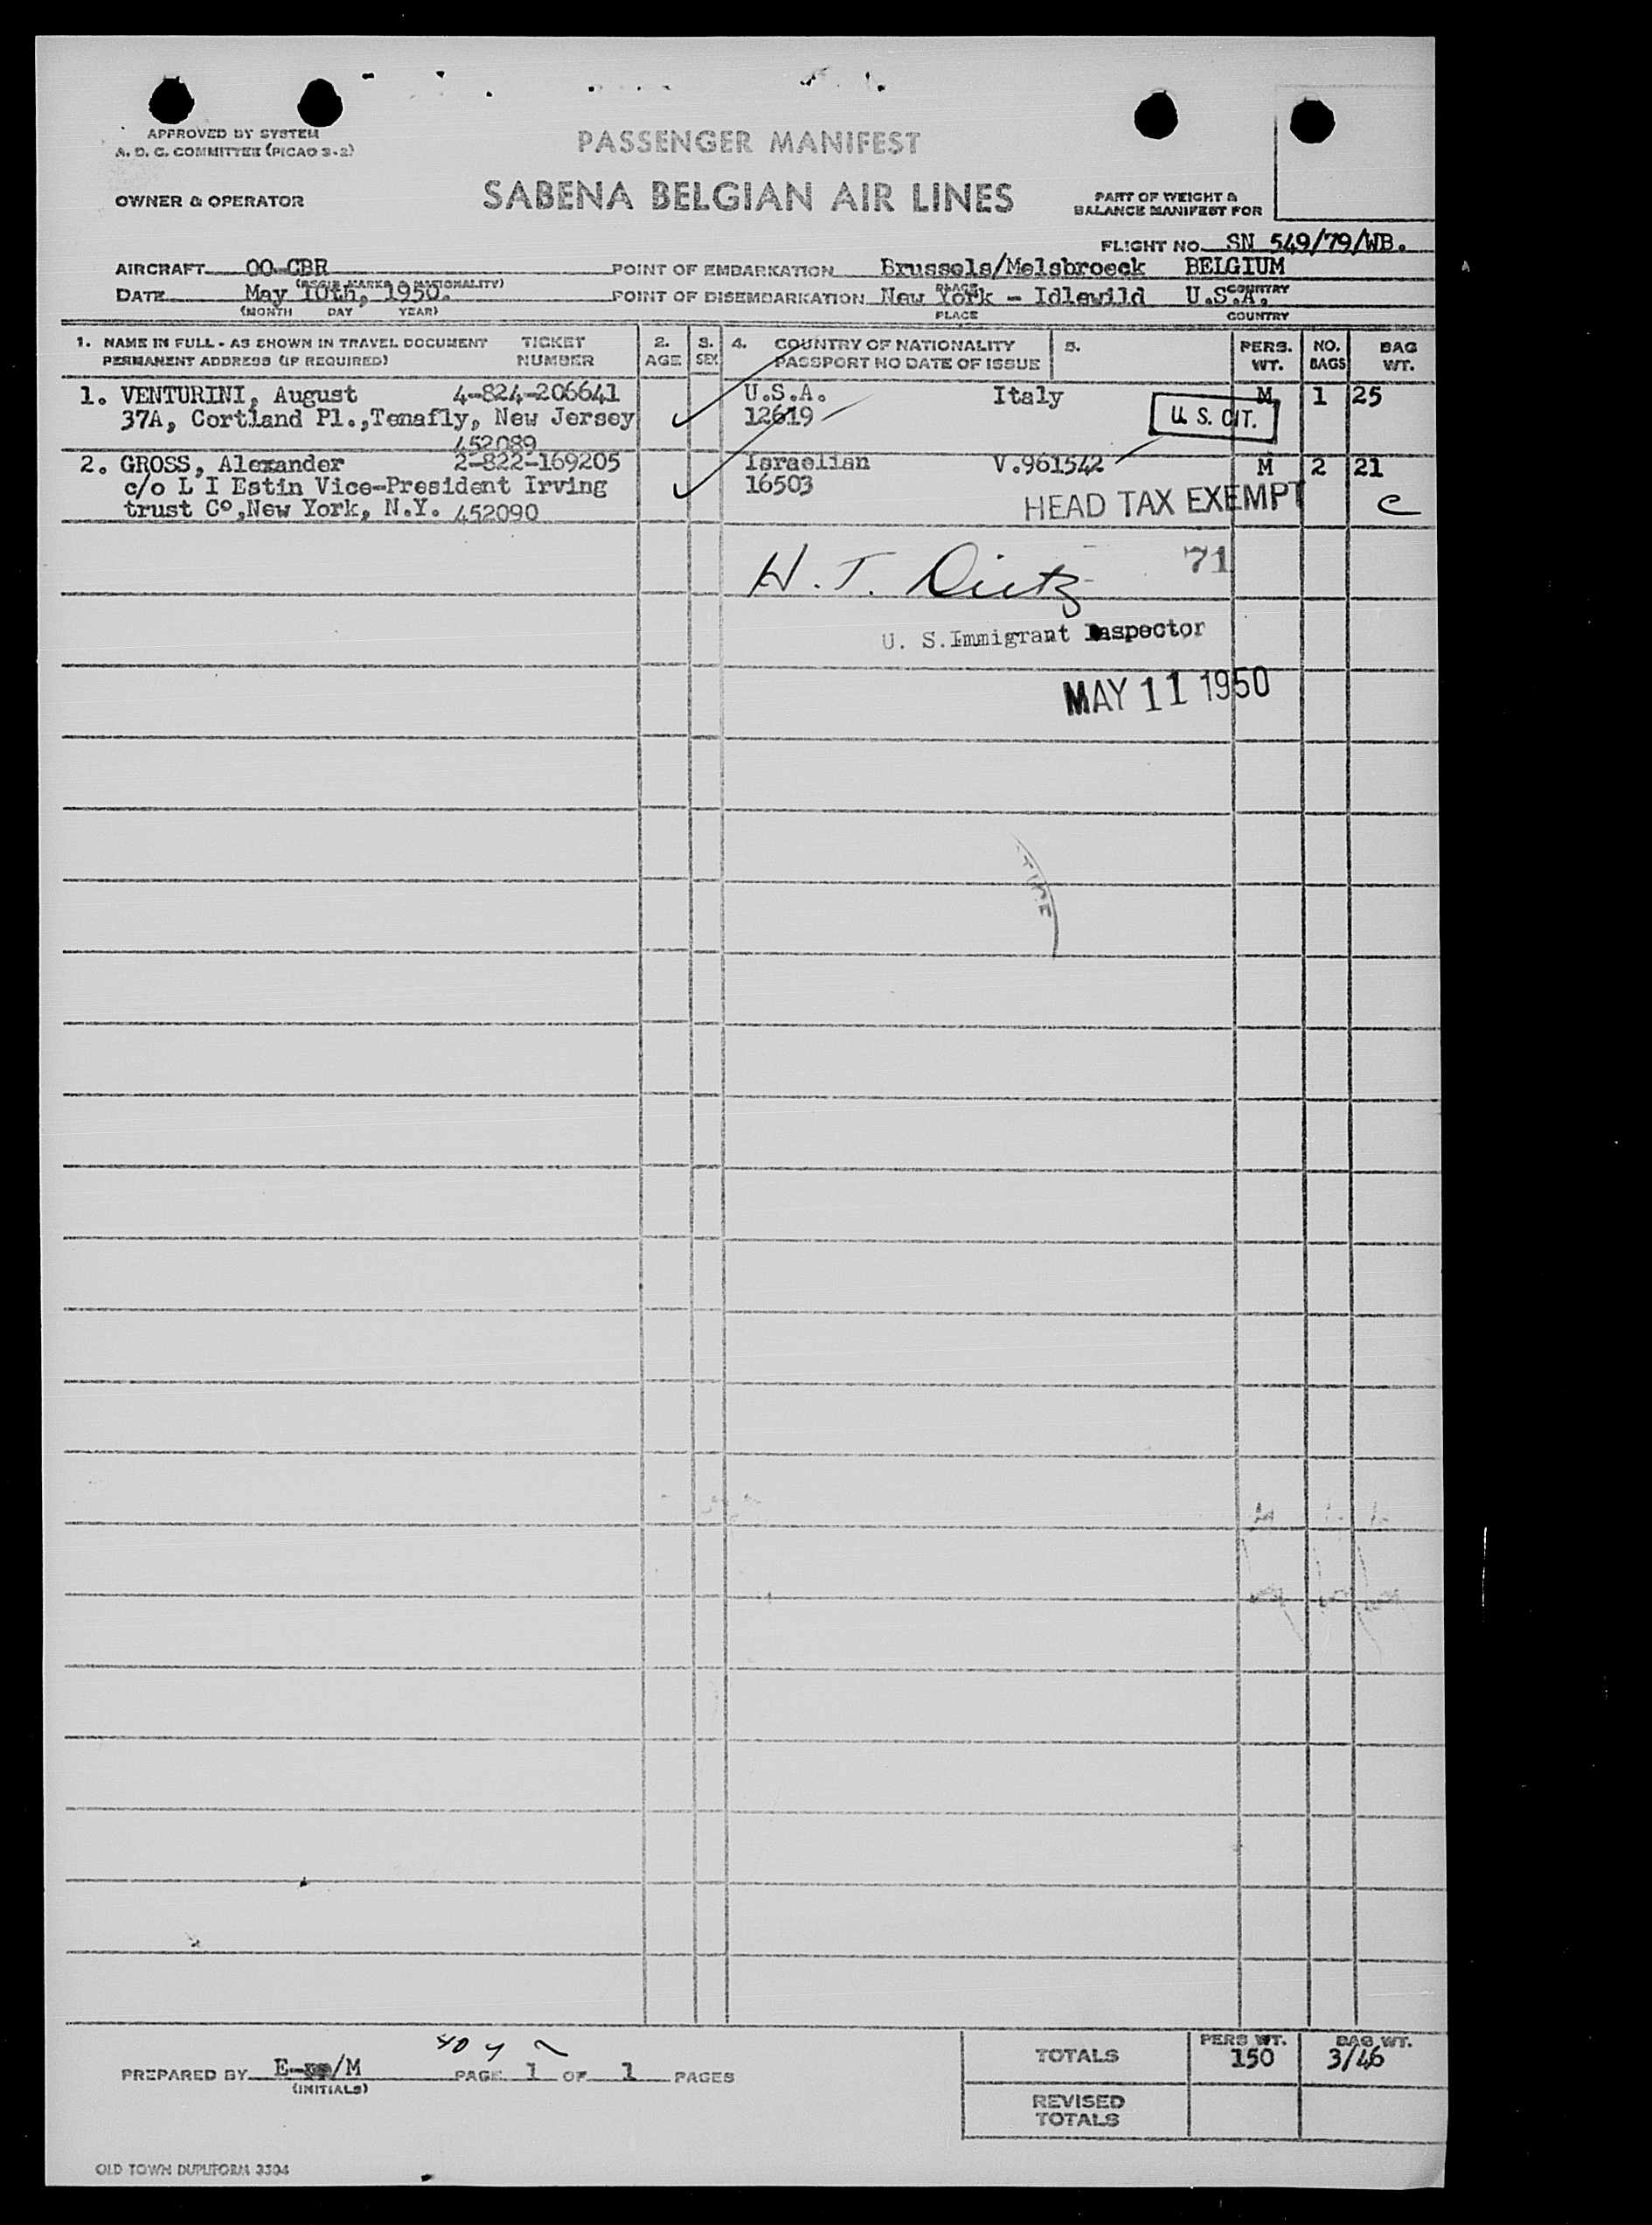 APPROVED BY SYSTEM
A. D. C. COMMITTEE (PICAO S-2)
PASSENGER MANIFEST
OWNER & OPERATOR
SABENA BELGIAN AIR LINES
PART OF WEIGHT &
BALANCE MANIFEST FOR
FLIGHT NO. SN 549/79/WB.
AIRCRAFT OO-CBR
POINT OF EMBARKATION Brussels/Melsbroeck BELGIUM
(REGIS MARKS & NATIONALITY)
PLACE COUNTRY
DATE May 10th, 1950.
POINT OF DISEMBARKATION New York - Idlewild U.S.A.
(MONTH DAY YEAR)
PLACE COUNTRY
1. NAME IN FULL - AS SHOWN IN TRAVEL DOCUMENT
PERMANENT ADDRESS (IF REQUIRED)
TICKET
NUMBER
2.
AGE
3.
SEX
4. COUNTRY OF NATIONALITY
PASSPORT NO DATE OF ISSUE
5.
PERS.
WT.
NO.
BAGS
BAG
WT.
1. VENTURINI, August 4-824-206641 U.S.A. Italy M 1 25
37A, Cortland Pl.,Tenafly, New Jersey 12619 U. S. CIT.
452089
2. GROSS, Alexander 2-822-169205 Israelian V.961542 M 2 21
c/o L I Estin Vice-President Irving 16503
trust Co,New York, N.Y. 452090 HEAD TAX EXEMPT C
H. T. Dietz 71
U. S. Immigrant Inspector
MAY 11 1950
PREPARED BY /M
(INITIALS)
PAGE 1 OF 1 PAGES
TOTALS
PERS WT.
150
BAG WT.
3/46
REVISED
TOTALS
OLD TOWN DUPLIFORM 3304